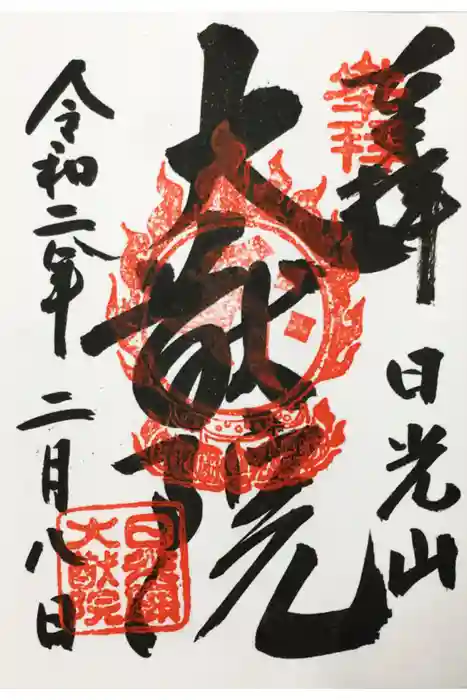 奉拝
日光山
大猷院
令和二年
二月八日
日光廟
大猷院